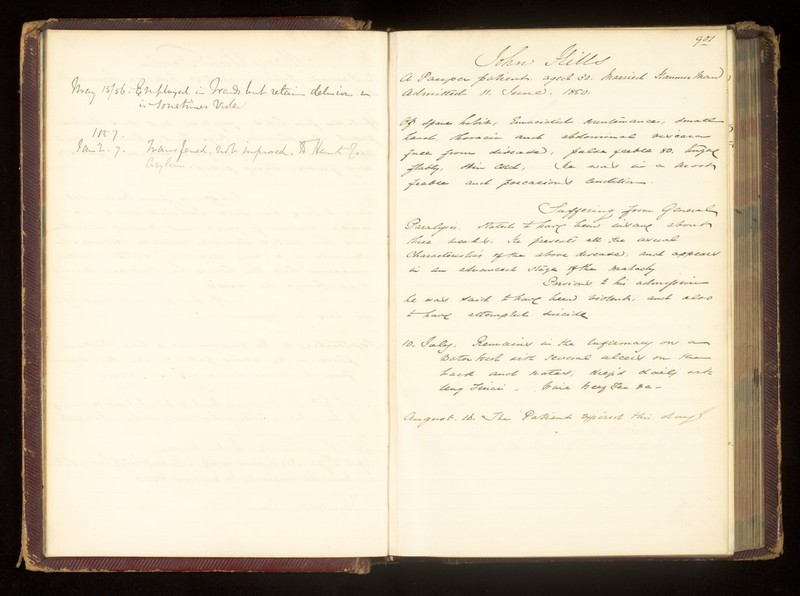 May 15/56. Employed in Wards but retains delusion &
is sometimes Violent
1857.
Jan 2. 7. Transferred, not improved, to Hants Co
Asylum
901
John Hills
A Pauper patient aged 30. Married
Admitted 11. June. 1850.
Of spare habit, Emaciated countenance, small
head, thoracic and abdominal viscera
free from disease, pulse feeble 80. tongue
flabby, skin cold, He was in a most
feeble and precarious condition.
Suffering from General
Paralysis. Stated to have been insane about
three weeks. He presents all the usual
Characteristics of the above disease, and appears
in an advanced stage of the malady
Previous to his admission
he was said to have been violent, and also
to have attempted suicide
10. July. Remains in the Infirmary on a
Water bed with several ulcers on the
back and nates, daily with
Ung Zinci - Wine Beef Tea &c -
August. 18. The Patient expired this day